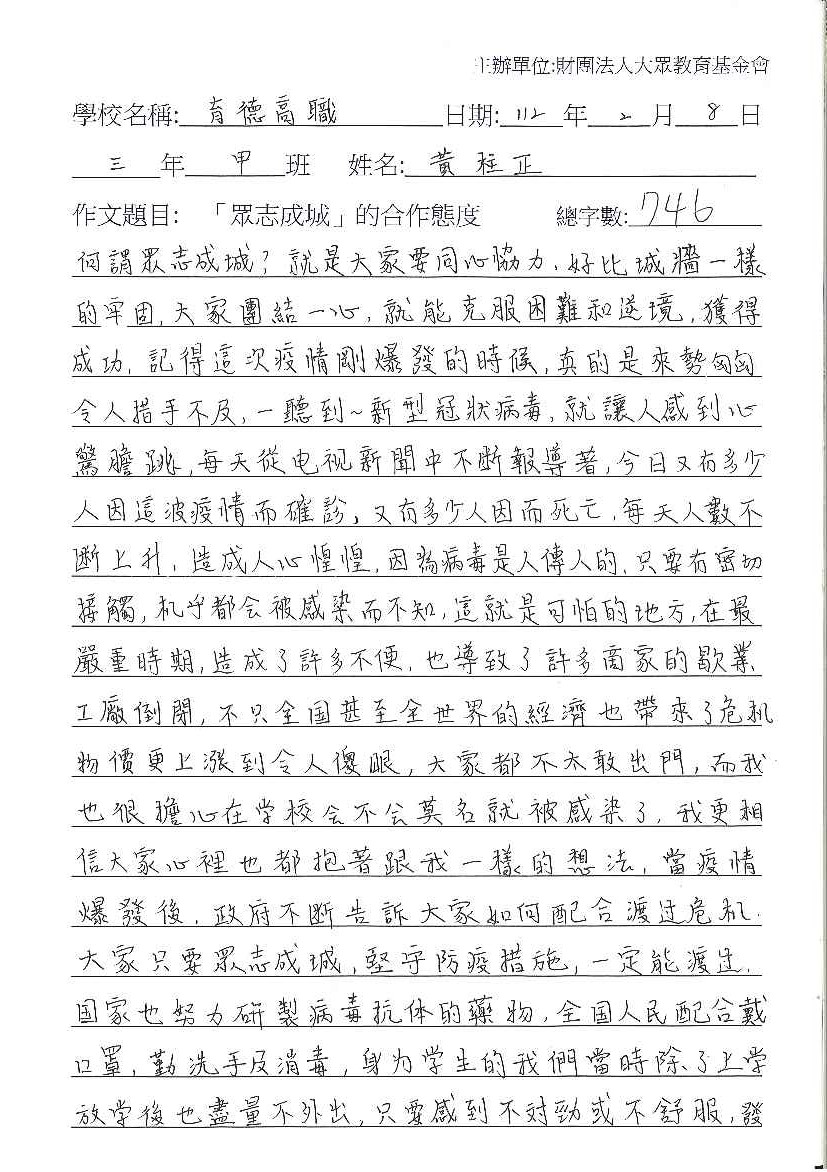 主辦單位:財團法人大眾教育基金會
學校名稱: 育德高職 日期: 112 年 2 月 8 日
三 年 甲 班 姓名: 黃程正
作文題目: 「眾志成城」的合作態度 總字數: 746
何謂眾志成城?就是大家要同心協力,好比城牆一樣
的牢固,大家團結一心,就能克服困難和逆境,獲得
成功,記得這次疫情剛爆發的時候,真的是來勢匈匈
令人措手不及,一聽到~新型冠狀病毒,就讓人感到心
驚膽跳,每天從电視新聞中不斷報導著,今日又有多少
人因這波疫情而確診,又有多少人因而死亡,每天人數不
斷上升,造成人心惶惶,因為病毒是人傳人的,只要有密切
接觸,机乎都会被感染而不知,這就是可怕的地方,在最
嚴重時期,造成了許多不便,也導致了許多商家的歇業
工廠倒閉,不只全国甚至全世界的經濟也帶來了危机
物價更上漲到令人傻眼,大家都不太敢出門,而我
也很擔心在学校会不会莫名就被感染了,我更相
信大家心裡也都抱著跟我一樣的想法,當疫情
爆發後,政府不斷告訴大家如何配合渡过危机.
大家只要眾志成城,堅守防疫措施,一定能渡过.
国家也努力研製病毒抗体的藥物,全国人民配合戴
口罩,勤洗手及消毒,身为学生的我們當時除了上学
放学後也盡量不外出,只要感到不对勁或不舒服,發